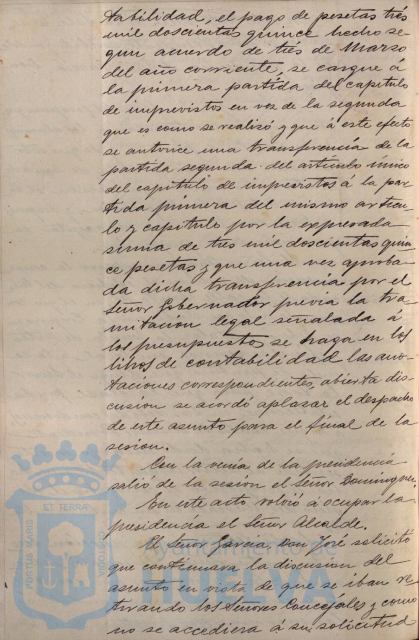 tabilidad, el pago de pesetas tres
mil doscientas quince hecho se
gun acuerdo de tres de Marzo
del año corriente, se cargue á
la primera partida del capitulo
de imprevistos en vez de la segunda
que es como se realizó y que á este efecto
se autorice una transferencia de la
partida segunda del articulo único
del capitulo de imprevistos á la par
tida primera del mismo articu
lo y capitulo por la expresada
suma de tres mil doscientas quin
ce pesetas y que una vez aproba
da dicha transferencia por el
Señor Gobernador previa la tra
mitacion legal señalada á
los presupuestos se haga en los
libros de contabilidad las ano-
taciones correspondientes, abierta dis-
cusion se acordó aplazar el despacho
de este asunto para el final de la
sesion.
Con la venia de la presidencia
salió de la sesion el Señor Dominguez.
En este acto volvió á ocupar la
presidencia el Señor Alcalde.
El Señor Garcia, Don José solicitó
que continuara la discusion del
asunto en vista de que se iban re
tirando los Señores Concejales y como
no se accediera á su solicitud
PORTUS MARIS ET TERRÆ CUSTODIA
HUELVA